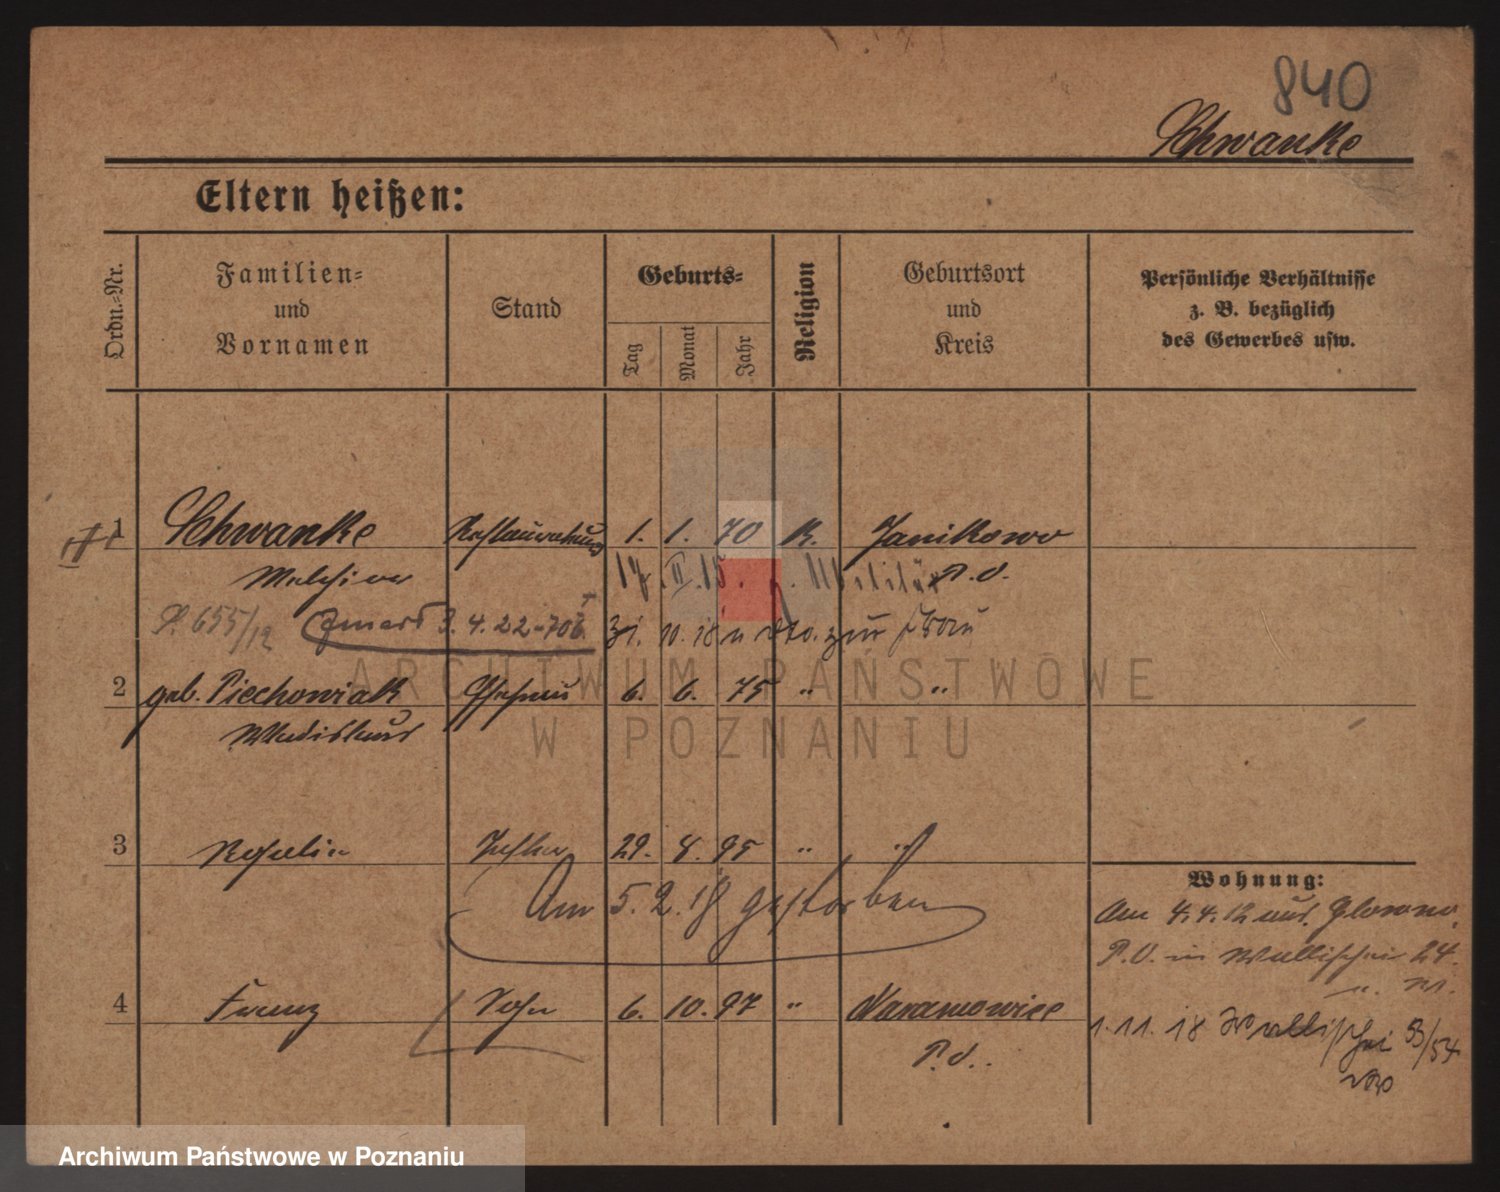 840
Schwanke
Eltern heißen:
Ordn.-Nr.
Familien-
und
Vornamen
Stand
Geburts-
Tag
Monat
Jahr
Religion
Geburtsort
und
Kreis
Persönliche Verhältnisse
z. B. bezüglich
des Gewerbes usw.
1 Schwanke 1. 1. 70 K. Janikowo
Melchior 17. II. 15. z. Militär P. O.
P. 655/12 3. 4. 22 zur Frau
2 geb. Piechowiak Ehefrau 6. 6. 75 " "
Wladislawa
3 Rosalie Tochter 29. 8. 95 " "
Am 5. 2. 18 gestorben
4 Franz Sohn 6. 10. 97 " Naramowice
P. O.
Wohnung:
Am 4. 4. 12 aus Glowno
P. O. in Wallischei 24.
1. 11. 18 Wallischei 53/54
ARCHIWUM PAŃSTWOWE
W POZNANIU
Archiwum Państwowe w Poznaniu